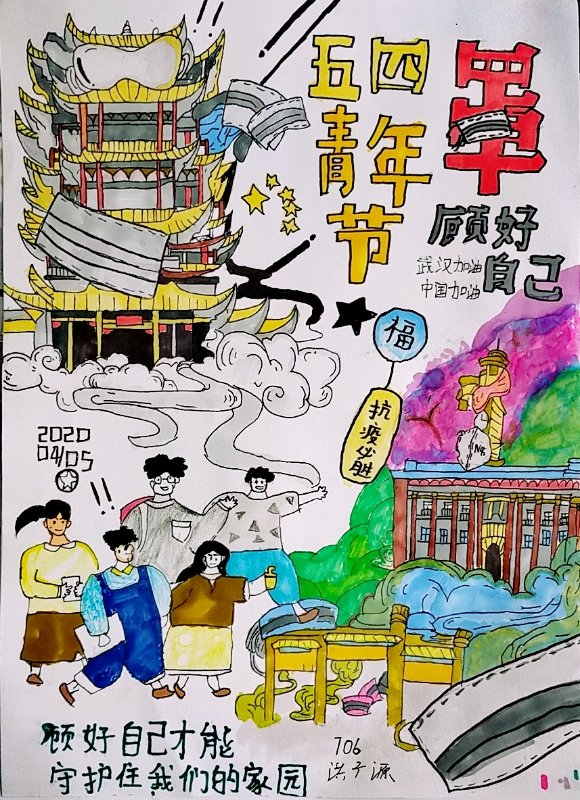 五四
青年节
罩
顾好
自己
武汉加油
中国加油
福
抗疫必胜
2020
04/05
!!
N95
顾好自己才能
守护住我们的家园
706
洪子源